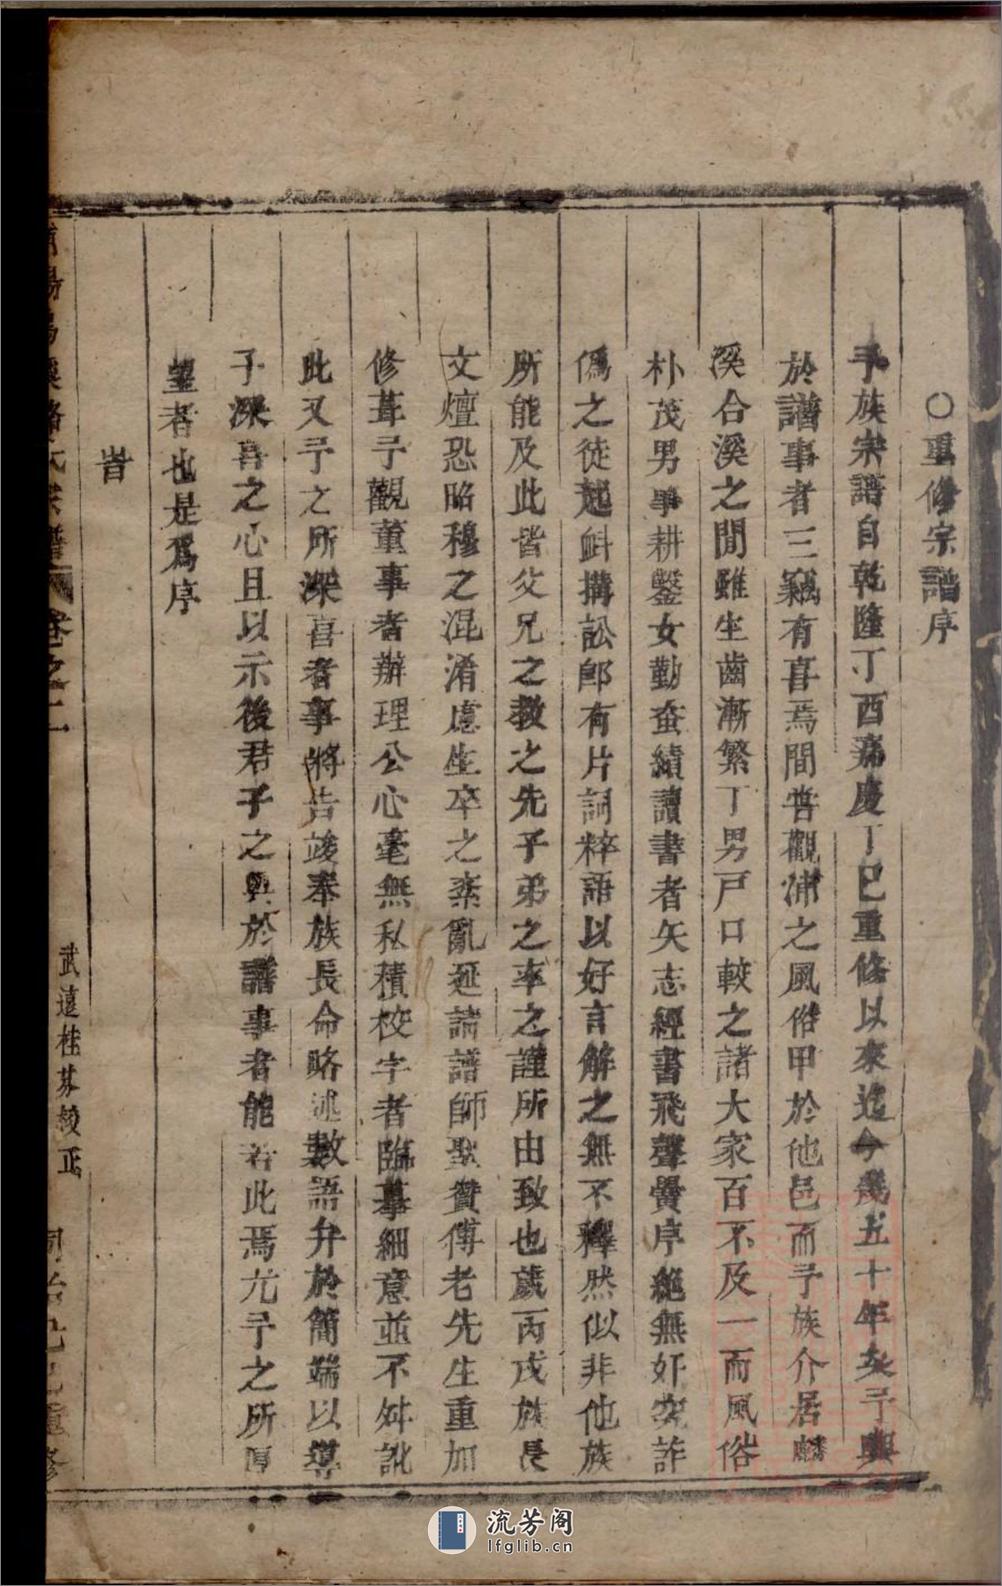 〇重修宗譜序
予族宗譜自乾隆丁酉嘉慶丁巳重修以來迄今幾五十年矣予與
於譜事者三竊有喜焉間嘗觀浦之風俗甲於他邑而予族介居麟
溪合溪之間雖生齒漸繁丁男戸口較之諸大家百不及一而風俗
朴茂男事耕鑿女勤蚕績讀書者矢志經書飛聲黌序絶無奸宄詐
僞之徒起衅搆訟郎有片詞粹語以好言解之無不釋然似非他族
所能及此皆父兄之教之先子弟之率之謹所由致也歲丙戌族長
文煊恐昭穆之混淆慮生卒之紊亂延請譜師聖賛傅老先生重加
修葺予觀董事者辦理公心毫無私積校字者臨摹細意並不舛訛
此又予之所深喜者事將告竣奉族長命略述數語弁於簡端以導
予深喜之心且以示後君子之與於譜事者能若此焉尤予之所厚
望者也是爲序
旹
宗譜 卷之二
武遠桂芬校正
同治己巳重修
流芳阁
lfglib.cn